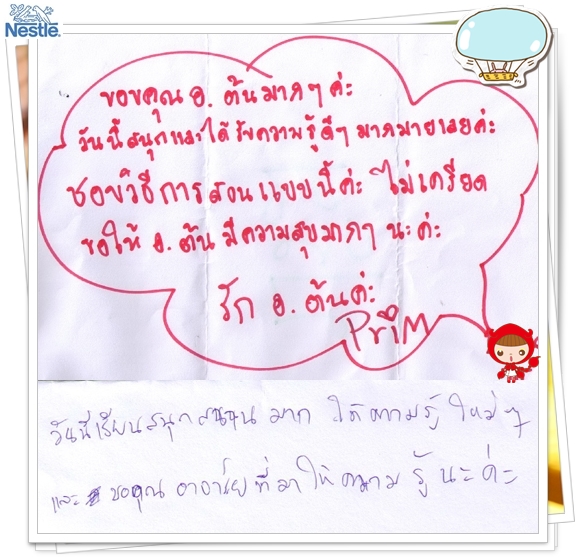 Nestlé
ขอบคุณ อ. ต้นมากๆ ค่ะ
วันนี้สนุกและได้รับความรู้ดีๆ มากมายเลยค่ะ
ชอบวิธีการสอนแบบนี้ค่ะ ไม่เครียด
ขอให้ อ. ต้น มีความสุขมากๆ นะค่ะ
รัก อ. ต้นค่ะ
Prim
วันนี้เรียนสนุกสนาน มาก ได้ความรู้ ใหม่ๆ
และ ขอบคุณ อาจารย์ ที่มาให้ความ รู้ นะค่ะ